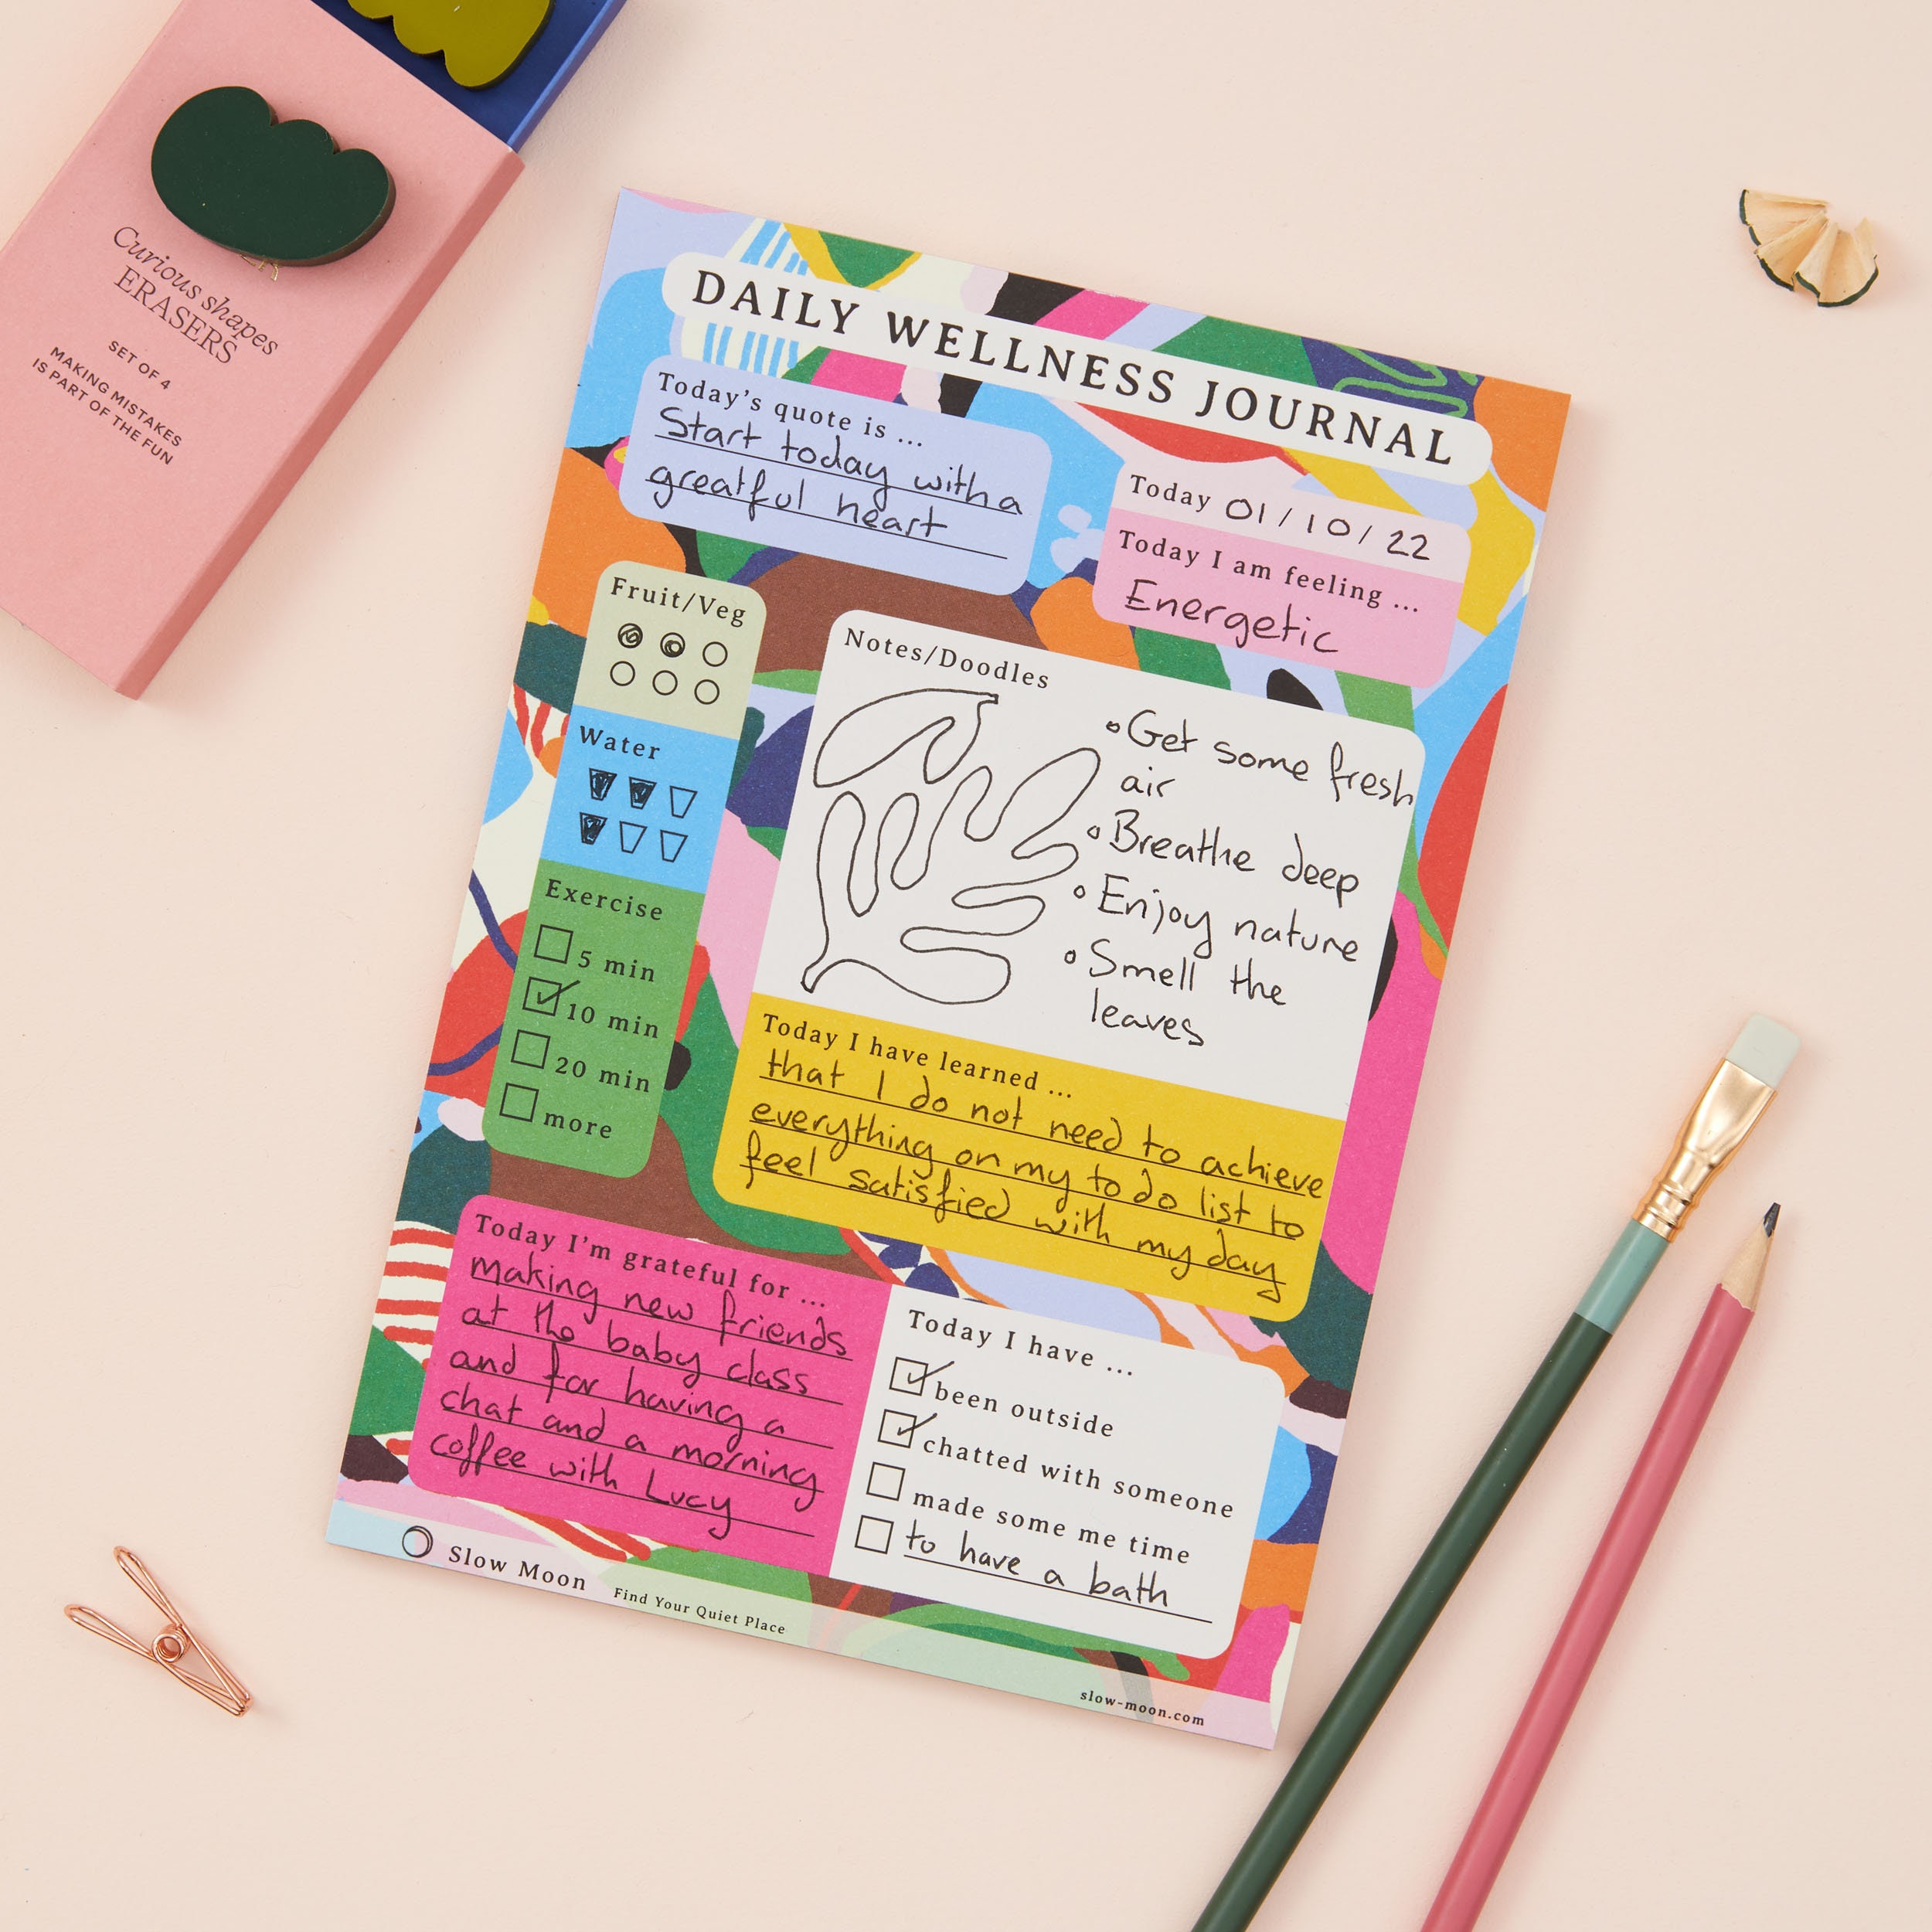 Curious shapes
ERASERS
SET OF 4
MAKING MISTAKES
IS PART OF THE FUN
DAILY WELLNESS JOURNAL
Today's quote is ...
Start today with a
greatful heart
Today 01/10/22
Today I am feeling ...
Energetic
Fruit/Veg
Water
Exercise
5 min
10 min
20 min
more
Notes/Doodles
Get some fresh
air
Breathe deep
Enjoy nature
Smell the
leaves
Today I have learned ...
that I do not need to achieve
everything on my to do list to
feel satisfied with my day
Today I'm grateful for ...
making new friends
at the baby class
and for having a
chat and a morning
coffee with Lucy
Today I have ...
been outside
chatted with someone
made some me time
to have a bath
Slow Moon
Find Your Quiet Place
slow-moon.com